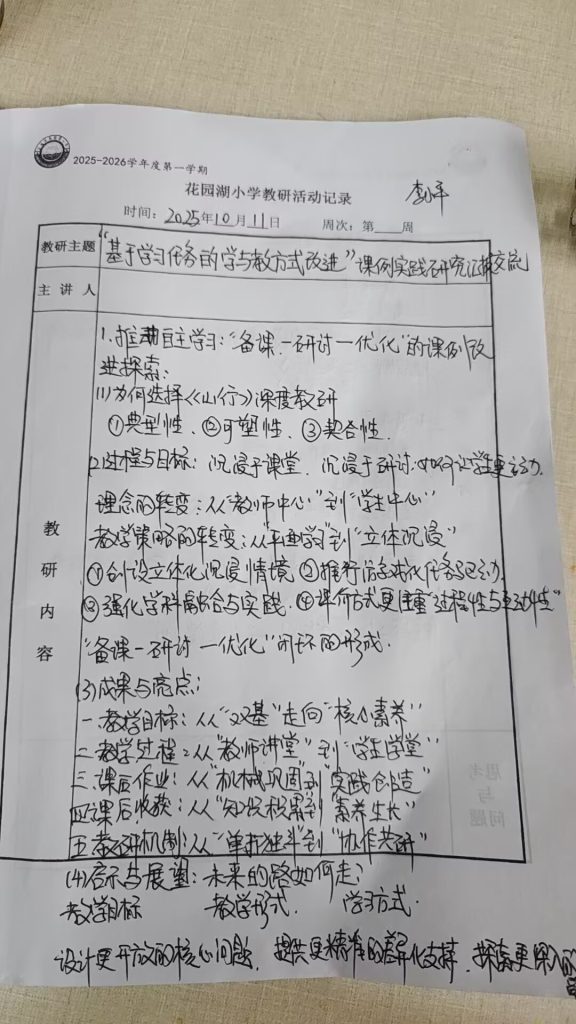 2025-2026学年度第一学期
花园湖小学教研活动记录
时间：2025年10月11日 周次：第___周
教研主题 “基于学习任务的学与教方式改进”课例实践研究汇报交流
主讲人
教研内容
1.推动自主学习：“备课一研讨一优化”的课例改
进探索：
(1)为何选择《山行》深度教研
①典型性、②可塑性、③契合性.
(2)过程与目标：沉浸于课堂、沉浸于研讨:如何让学生更主动.
理念的转变：从“教师中心”到“学生中心”
教学策略的转变：从“平面学习”到“立体沉浸”
①创设立体化沉浸情境 ②推行游戏化任务驱动.
③强化学科融合与实践. ④评价方式更注重“过程性与互动性”
“备课一研讨一优化”闭环的形成.
(3)成果与亮点：
一.教学目标：从“双基”走向“核心素养”
二.教学过程：从“教师讲堂”到“学生学堂”
三.课后作业：从“机械巩固”到“实践创造”
四.课后收获：从“知识积累”到“素养生长”
五.教研机制：从“单打独斗”到“协作共研”
(4)启示与展望：未来的路如何走？
教学目标 教学形式. 学习方式.
设计更开放的核心问题、提供更精准的差异化支持、探索更深入的